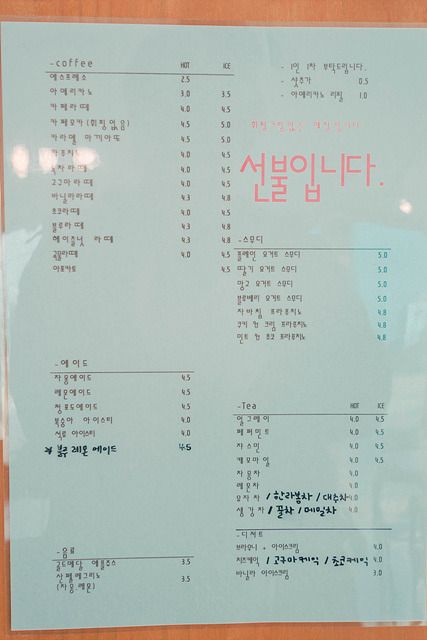 -coffee HOT ICE
에스프레소 2.5
아메리카노 3.0 3.5
카페라떼 4.0 4.5
카페모카(휘핑없음) 4.5 5.0
카라멜 마끼아또 4.5 5.0
카푸치노 4.0 4.5
녹차라떼 4.0 4.5
고구마라떼 4.0 4.5
바닐라라떼 4.3 4.8
초코라떼 4.0 4.5
블루라떼 4.3 4.8
헤이즐넛 라떼 4.3 4.8
곡물라떼 4.0 4.5
아포카토 4.5
-에이드
자몽에이드 4.5
레몬에이드 4.5
청포도에이드 4.5
복숭아 아이스티 4.0
석류 아이스티 4.0
* 블루 레몬 에이드 4.5
-음료
골드메달 애플주스 3.5
산펠레그리노 3.5
(자몽,레몬)
- 1인 1차 부탁드립니다.
- 샷추가 0.5
- 아메리카노 리필 1.0
선불입니다.
-스무디
플레인 요거트 스무디 5.0
딸기 요거트 스무디 5.0
망고 요거트 스무디 5.0
블루베리 요거트 스무디 5.0
자바칩 프라푸치노 4.8
쿠키 앤 크림 프라푸치노 4.8
민트 앤 초코 프라푸치노 4.8
-Tea HOT ICE
얼그레이 4.0 4.5
페퍼민트 4.0 4.5
자스민 4.0 4.5
캐모마일 4.0 4.5
자몽차 4.0
레몬차 4.0
유자차 /한라봉차 /대추차 4.0
생강차 /꿀차 /메밀차 4.0
-디저트
브라우니 + 아이스크림 4.0
치즈케익 /고구마케익 /초코케익 4.0
바닐라 아이스크림 3.0